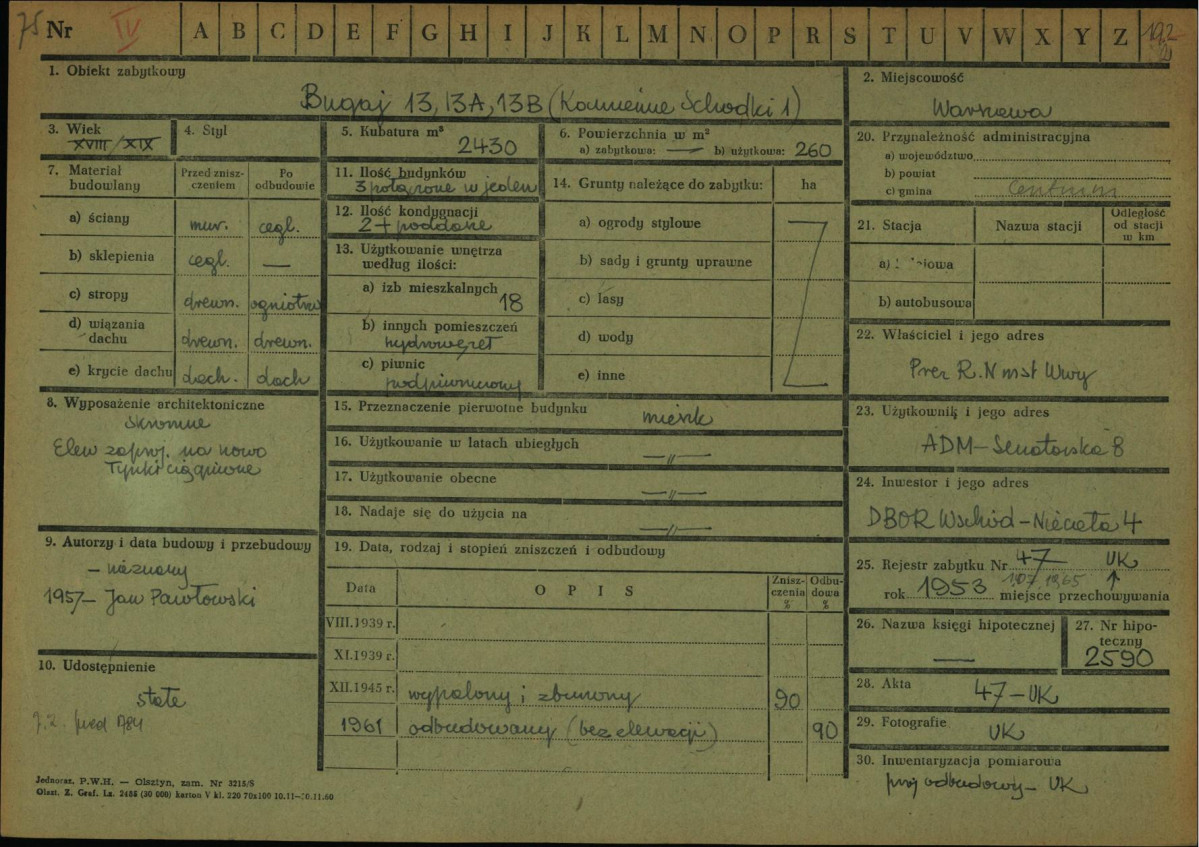 75 Nr IV A B C D E F G H I J K L M N O P R S T U V W X Y Z 192
1. Obiekt zabytkowy
Bugaj 13, 13A, 13B (Kamienne Schodki 1)
2. Miejscowość
Warszawa
3. Wiek
XVIII/XIX
4. Styl
5. Kubatura m³
2430
6. Powierzchnia w m²
a) zabytkowa: — b) użytkowa: 260
7. Materiał budowlany
Przed zniszczeniem
Po odbudowie
a) ściany mur. cegl.
b) sklepienia cegl. —
c) stropy drewn. ogniotrw
d) wiązania dachu drewn. drewn.
e) krycie dachu dach. dach
8. Wyposażenie architektoniczne
skromne
Elew zaproj. na nowo
Tynki ciągnione
9. Autorzy i data budowy i przebudowy
– nieznany
1957 – Jan Pawłowski
10. Udostępnienie
stałe
11. Ilość budynków
3 połączone w jeden
12. Ilość kondygnacji
2 + poddasze
13. Użytkowanie wnętrza według ilości:
a) izb mieszkalnych
18
b) innych pomieszczeń
c) piwnic
podpiwniczony
14. Grunty należące do zabytku: ha
a) ogrody stylowe
b) sady i grunty uprawne
c) lasy
d) wody
e) inne
15. Przeznaczenie pierwotne budynku mieszk
16. Użytkowanie w latach ubiegłych —〃—
17. Użytkowanie obecne —〃—
18. Nadaje się do użycia na —〃—
19. Data, rodzaj i stopień zniszczeń i odbudowy
Data OPIS Zniszczenia % Odbudowa %
VIII.1939 r.
XI.1939 r.
XII.1945 r. wypalony i zburzony 90
1961 odbudowany (bez elewacji) 90
20. Przynależność administracyjna
a) województwo
b) powiat
c) gmina Centrum
21. Stacja Nazwa stacji Odległość od stacji w km
b) autobusowa
22. Właściciel i jego adres
Prez R.N mst Wwy
23. Użytkownik i jego adres
ADM – Senatorska 8
24. Inwestor i jego adres
DBOR Wschód – Niecała 4
25. Rejestr zabytku Nr 47 UK
rok 1953 1.07.1965 miejsce przechowywania
26. Nazwa księgi hipotecznej
—
27. Nr hipoteczny
2590
28. Akta
47 – UK
29. Fotografie
UK
30. Inwentaryzacja pomiarowa
proj odbudowy – UK
Jednoraz. P.W.H. — Olsztyn, zam. Nr 3215/S
Olszt. Z. Graf. Lz. 2486 (30 000) karton V kl. 220 70x100 10.11—30.11.60